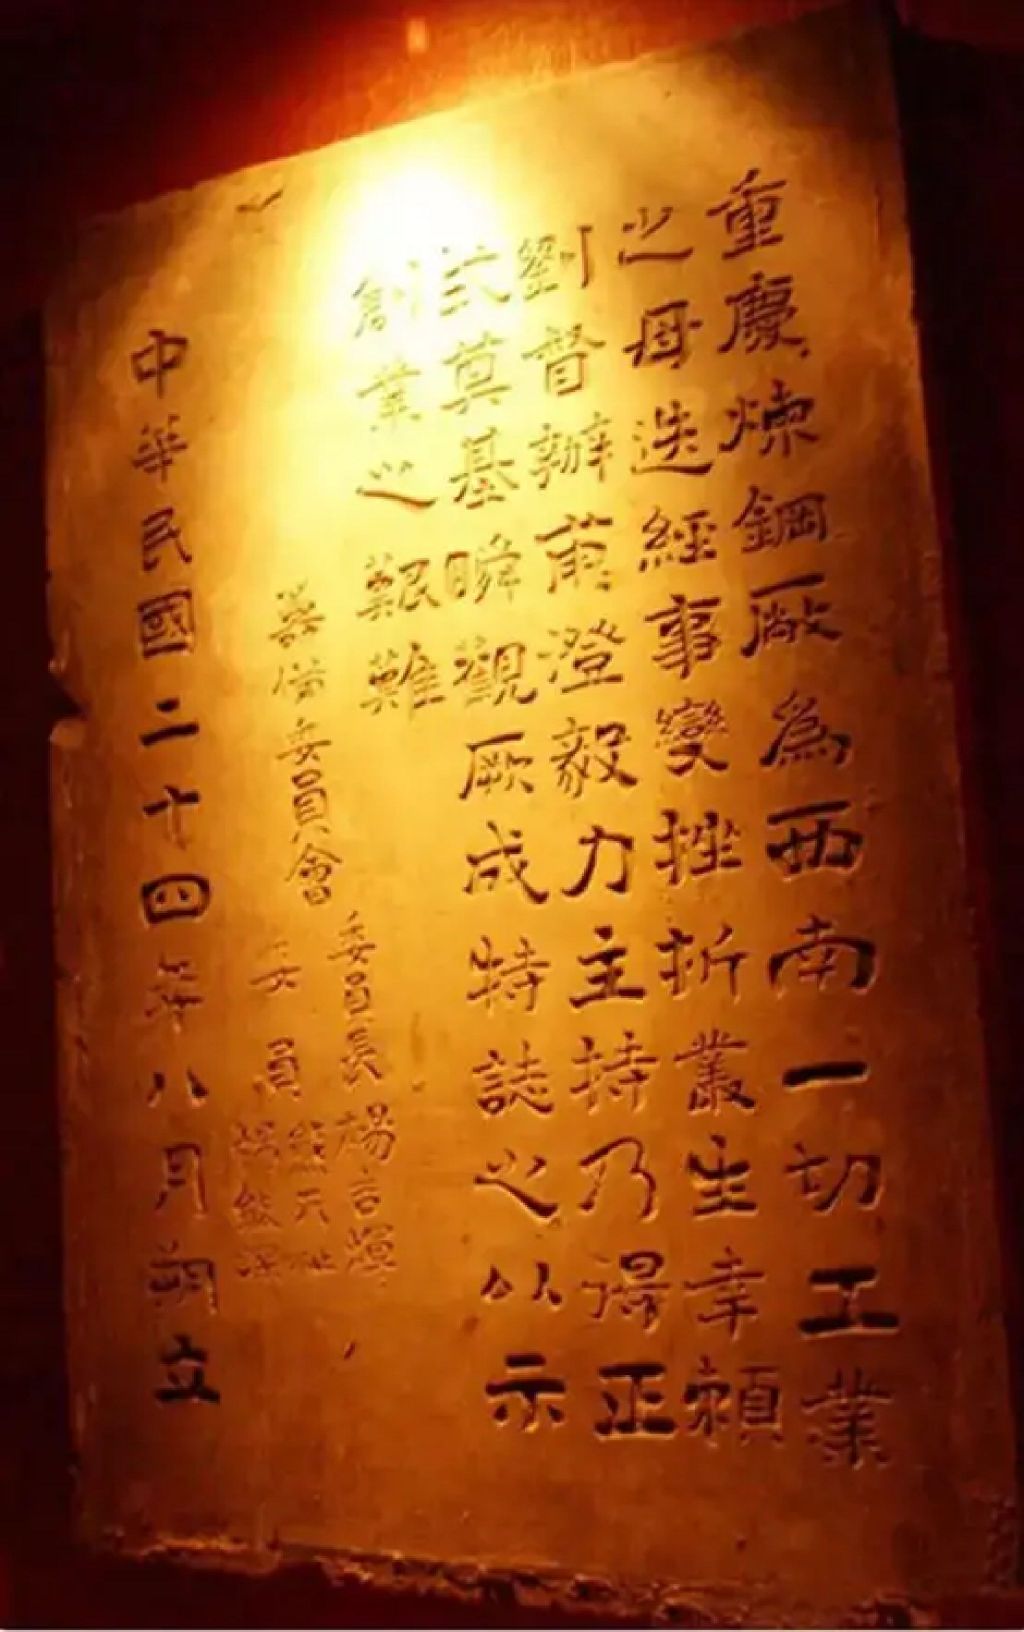 重慶煉鋼厰為西南一切工業
之母迭經事變挫折叢生幸賴
劉督辦甫澄毅力主持乃得正
式奠基瞬觀厥成特誌之以示
創業之艱難
籌備委員會
委員長楊吉輝
委員熊天祉
中華民國二十四年八月朔立